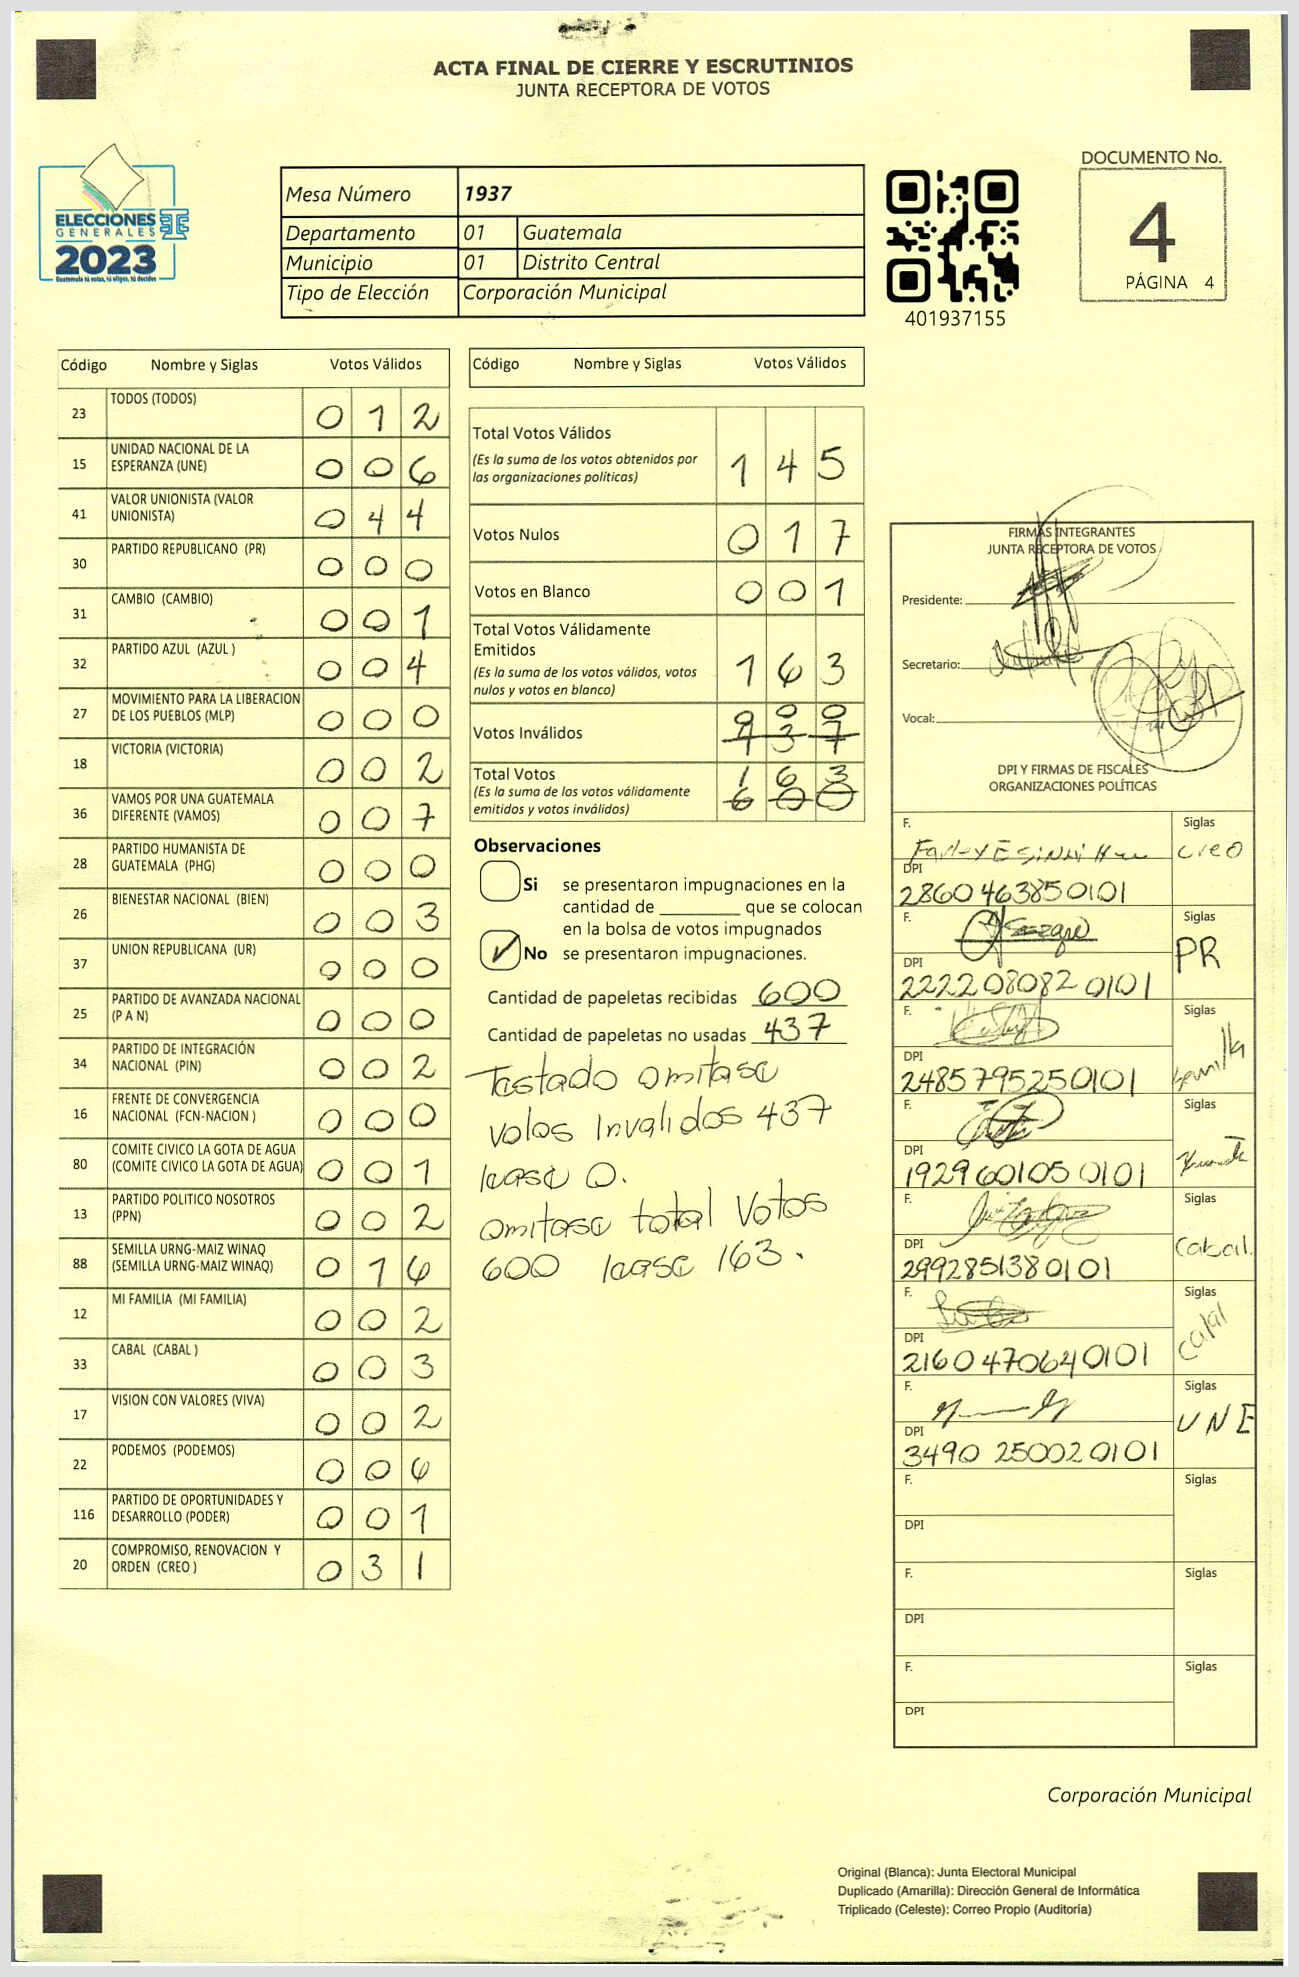 ACTA FINAL DE CIERRE Y ESCRUTINIOS
JUNTA RECEPTORA DE VOTOS
ELECCIONES
GENERALES
2023
Guatemala tú votas, tú eliges, tú decides
Mesa Número 1937
Departamento 01 Guatemala
Municipio 01 Distrito Central
Tipo de Elección Corporación Municipal
401937155
DOCUMENTO No.
4
PÁGINA 4
Código Nombre y Siglas Votos Válidos
23 TODOS (TODOS) 0 1 2
15 UNIDAD NACIONAL DE LA
ESPERANZA (UNE) 0 0 6
41 VALOR UNIONISTA (VALOR
UNIONISTA) 0 4 4
30 PARTIDO REPUBLICANO (PR) 0 0 0
31 CAMBIO (CAMBIO) 0 0 1
32 PARTIDO AZUL (AZUL ) 0 0 4
27 MOVIMIENTO PARA LA LIBERACION
DE LOS PUEBLOS (MLP) 0 0 0
18 VICTORIA (VICTORIA) 0 0 2
36 VAMOS POR UNA GUATEMALA
DIFERENTE (VAMOS) 0 0 7
28 PARTIDO HUMANISTA DE
GUATEMALA (PHG) 0 0 0
26 BIENESTAR NACIONAL (BIEN) 0 0 3
37 UNION REPUBLICANA (UR) 0 0 0
25 PARTIDO DE AVANZADA NACIONAL
(P A N) 0 0 0
34 PARTIDO DE INTEGRACIÓN
NACIONAL (PIN) 0 0 2
16 FRENTE DE CONVERGENCIA
NACIONAL (FCN-NACION ) 0 0 0
80 COMITE CIVICO LA GOTA DE AGUA
(COMITE CIVICO LA GOTA DE AGUA) 0 0 1
13 PARTIDO POLITICO NOSOTROS
(PPN) 0 0 2
88 SEMILLA URNG-MAIZ WINAQ
(SEMILLA URNG-MAIZ WINAQ) 0 1 6
12 MI FAMILIA (MI FAMILIA) 0 0 2
33 CABAL (CABAL ) 0 0 3
17 VISION CON VALORES (VIVA) 0 0 2
22 PODEMOS (PODEMOS) 0 0 6
116 PARTIDO DE OPORTUNIDADES Y
DESARROLLO (PODER) 0 0 1
20 COMPROMISO, RENOVACION Y
ORDEN (CREO ) 0 3 1
Código Nombre y Siglas Votos Válidos
Total Votos Válidos
(Es la suma de los votos obtenidos por
las organizaciones políticas) 1 4 5
Votos Nulos 0 1 7
Votos en Blanco 0 0 1
Total Votos Válidamente
Emitidos
(Es la suma de los votos válidos, votos
nulos y votos en blanco) 1 6 3
Votos Inválidos 0 0 0
Total Votos 1 6 3
(Es la suma de los votos válidamente
emitidos y votos inválidos) 6 0 0
Observaciones
Si se presentaron impugnaciones en la
cantidad de ________ que se colocan
en la bolsa de votos impugnados
No se presentaron impugnaciones.
Cantidad de papeletas recibidas 600
Cantidad de papeletas no usadas 437
Testado omitase
votos Invalidos 437
lease 0.
omitase total Votos
600 lease 163.
FIRMAS INTEGRANTES
JUNTA RECEPTORA DE VOTOS
Presidente:
Secretario:
Vocal:
DPI Y FIRMAS DE FISCALES
ORGANIZACIONES POLÍTICAS
F. Siglas
creo
DPI
2860463850101
F. Siglas
PR
DPI
2222080820101
F. Siglas
DPI
2485795250101
F. Siglas
DPI
1929601050101
F. Siglas
Cabal.
DPI
2992851380101
F. Siglas
Cabal
DPI
2160470640101
F. Siglas
UNE
DPI
3490 250020101
F. Siglas
DPI
F. Siglas
DPI
F. Siglas
DPI
Corporación Municipal
Original (Blanca): Junta Electoral Municipal
Duplicado (Amarilla): Dirección General de Informática
Triplicado (Celeste): Correo Propio (Auditoría)